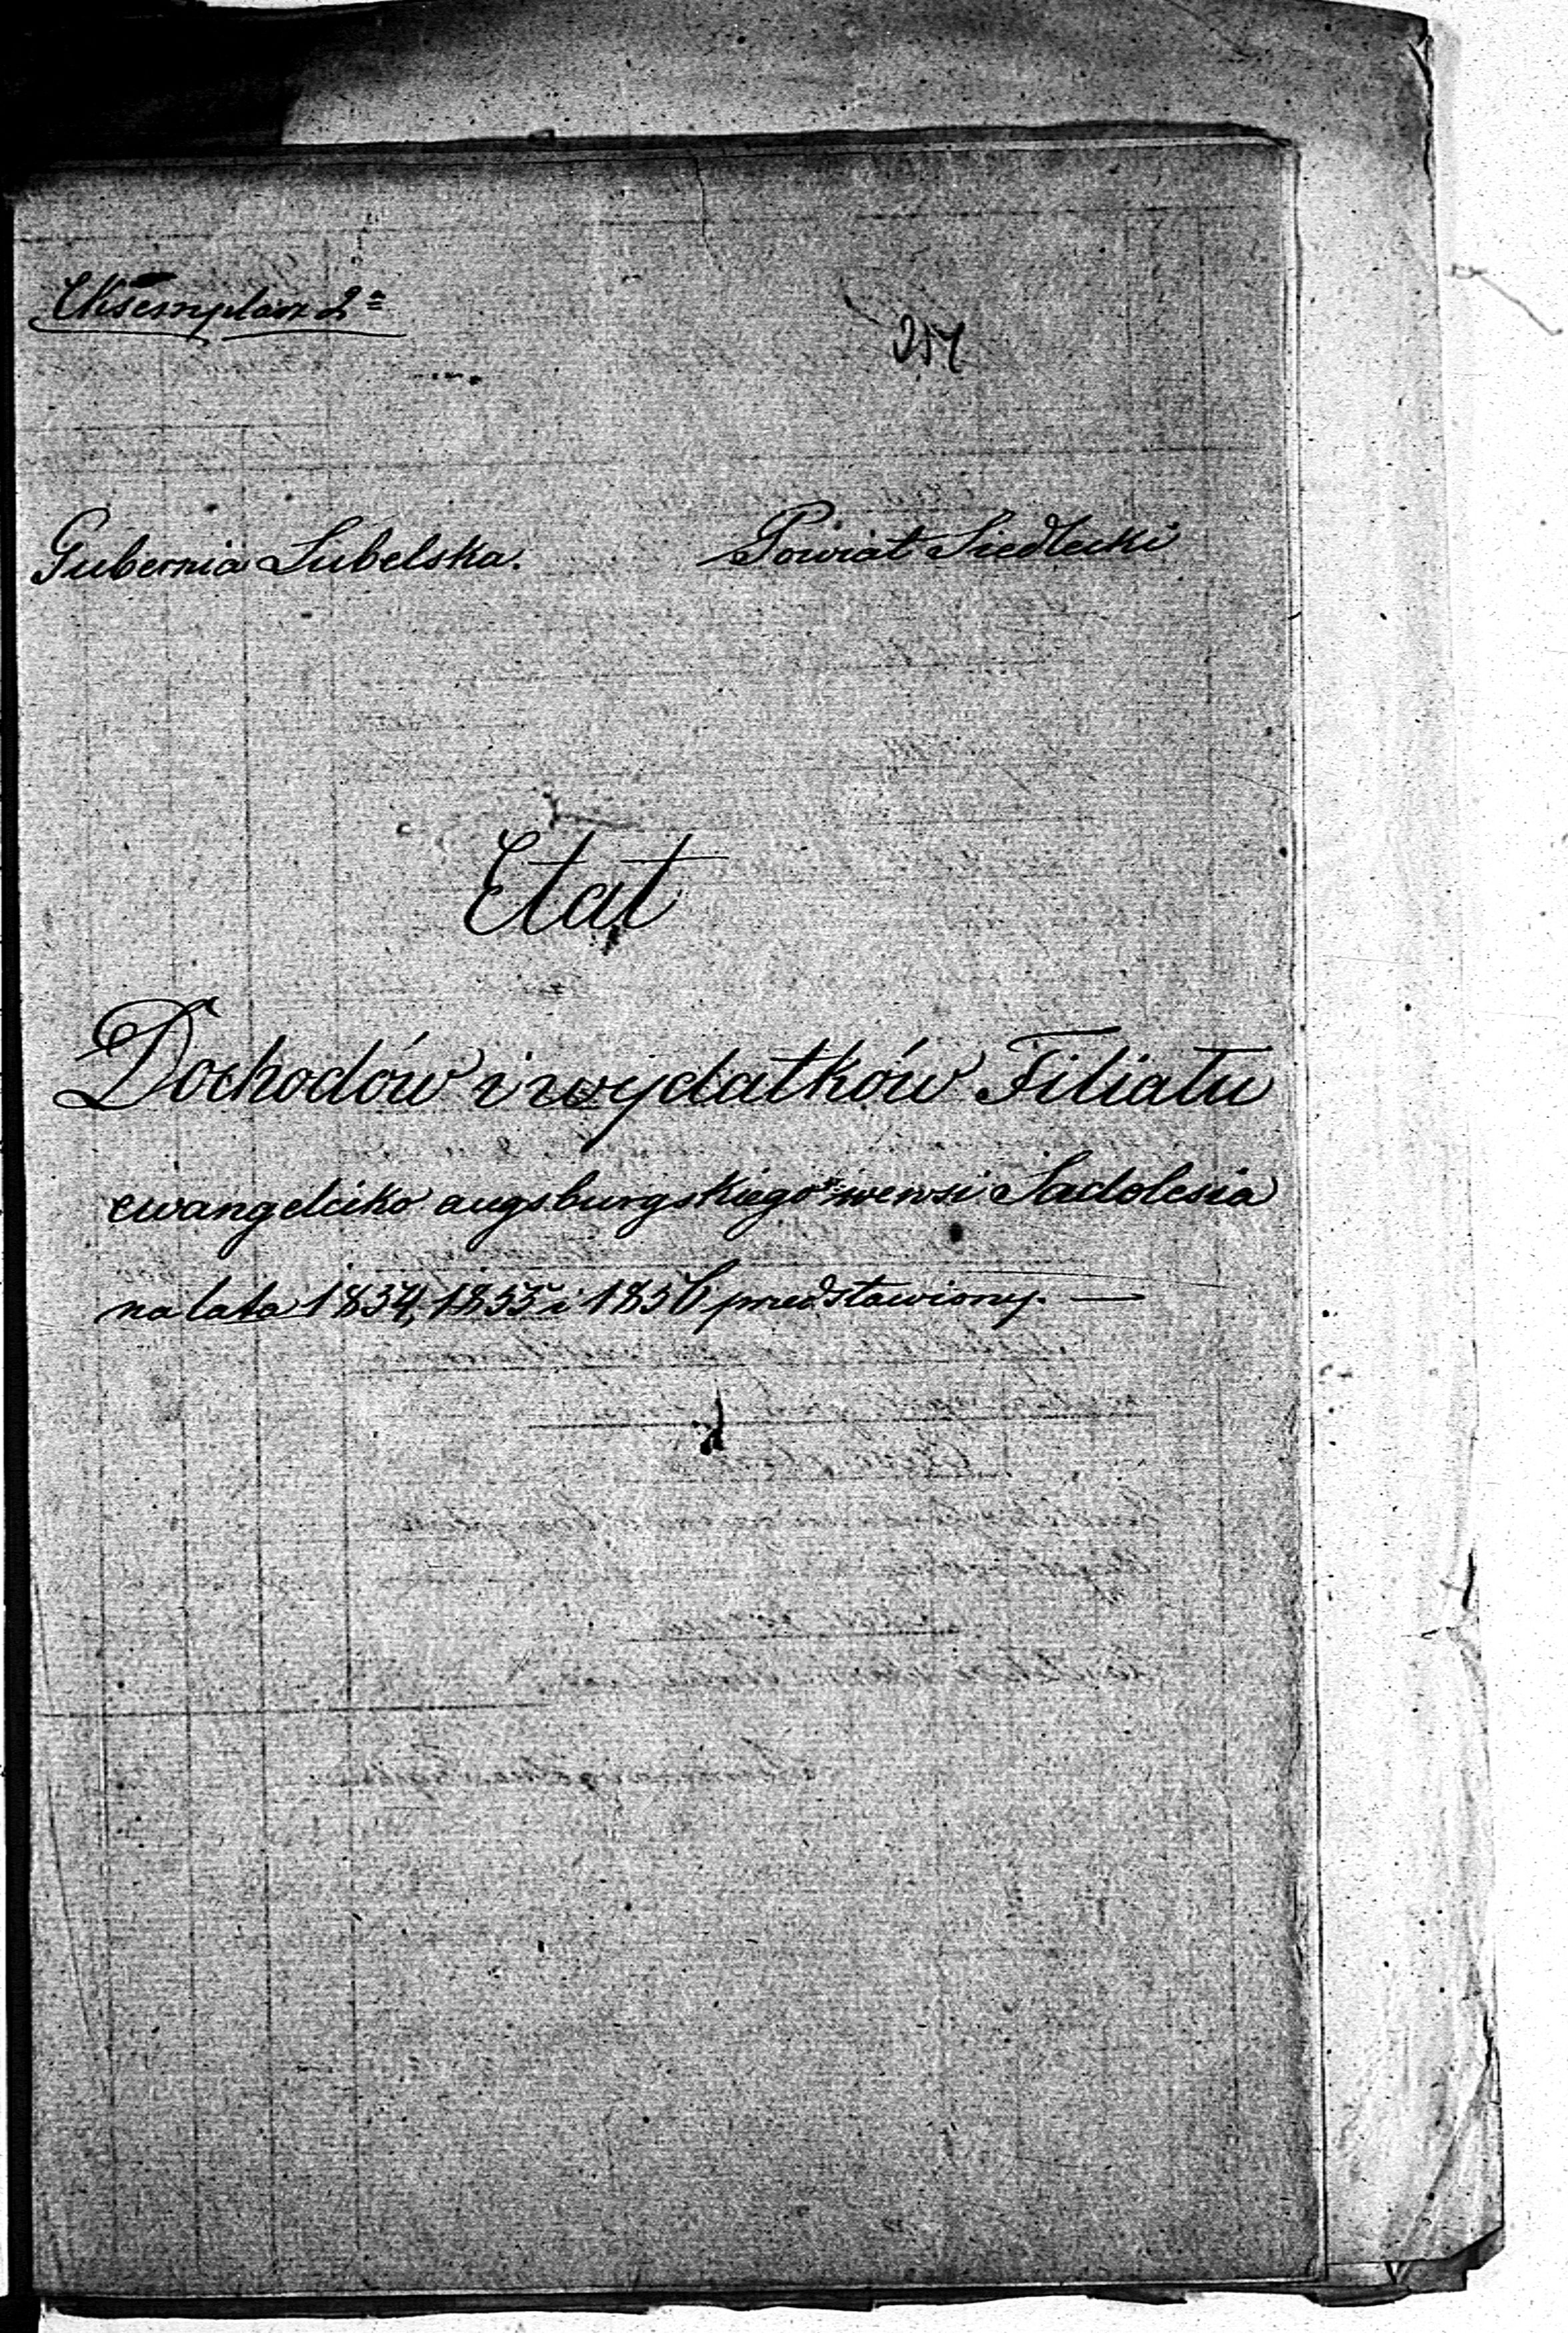 Eksemplarz 2=
257
Gubernia Lubelska. Powiat Siedlecki
Etat
Dochodów i wydatków Filiału
ewangelicko augsburgskiego we wsi Sadolesia
na lata 1854, 1855 i 1856 przedstawiony. —